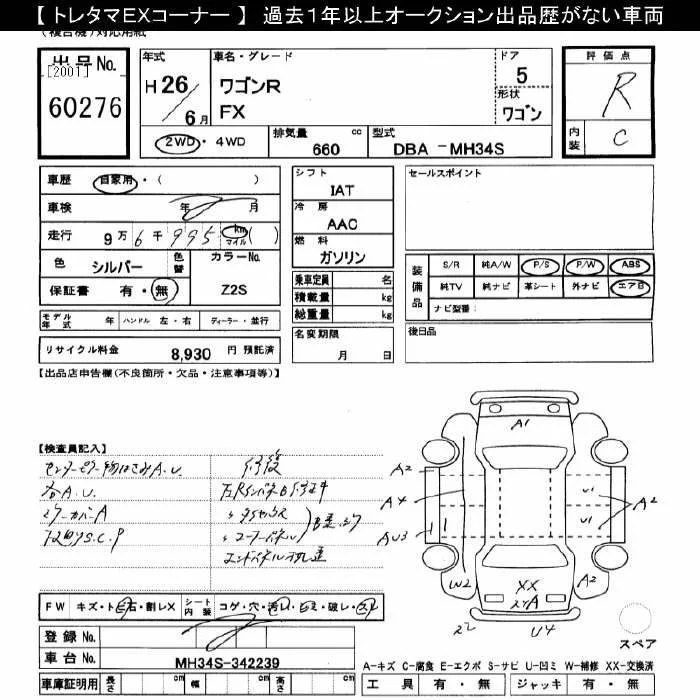 【 トレタマEXコーナー 】 過去１年以上オークション出品歴がない車両
出品No.
[2001]
60276
年式
H 26 / 6 月
車名・グレード
ワゴンR
FX
ドア
5
形状
ワゴン
2WD・4WD
排気量 cc
660
型式
DBA － MH34S
評価点
R
内装
C
車歴 自家用・( )
車検 年 月
走行 9 万 6 千 995 km マイル ( )
色 シルバー 色替
カラーNo.
Z2S
保証書 有・無
モデル年式 年 ハンドル 左・右 ディーラー・並行
リサイクル料金 8,930 円 預託済
シフト
IAT
冷房
AAC
燃料
ガソリン
乗車定員 名
積載量 kg
総重量 kg
名変期限
月 日
セールスポイント
装備品
S/R 純A/W P/S P/W ABS
純TV 純ナビ 革シート 外ナビ エアB
ナビ型番:
後日品
【出品店申告欄(不良箇所・欠品・注意事項等)】
【検査員記入】
各A.U.
修復
A1
A2
A4
AU3
U1
U1
A2
W2
XX
A2
U4
スペア
FW キズ・ト石・割レX
シート内装 コゲ・穴・汚レ・破レ・スレ
登録No.
車台No.
MH34S-342239
車庫証明用 長さ cm 幅 cm 高さ cm
A-キズ C-腐食 E-エクボ S-サビ U-凹ミ W-補修 XX-交換済
工具 有・無 ジャッキ 有・無